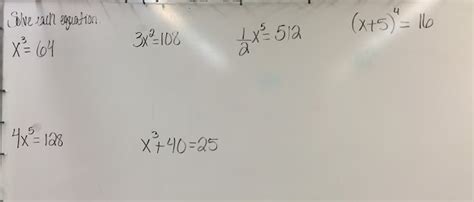 Solve each equation.
x³=64
3x²=108
1/2 x⁵=512
(x+5)⁴=16
4x⁵=128
x³+40=25